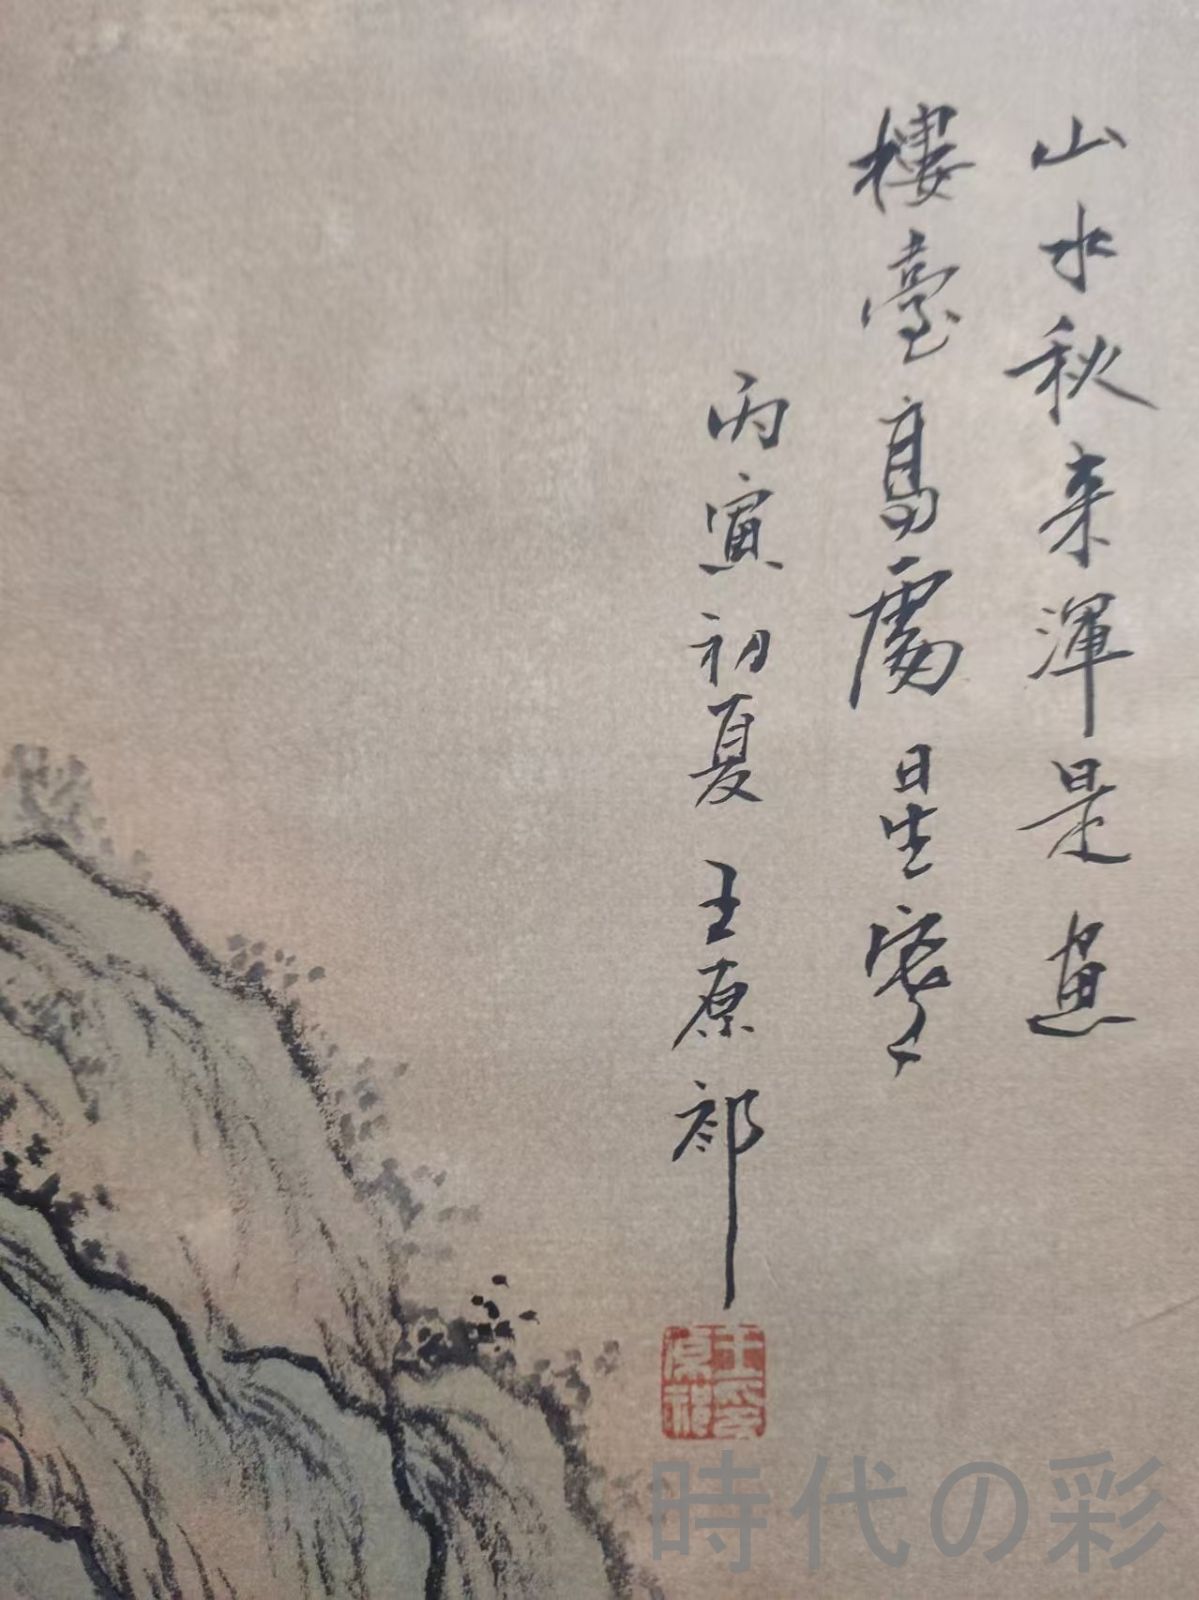 山水秋来渾是畫
樓臺高處
丙寅初夏 王原祁
王原祁印
時代の彩